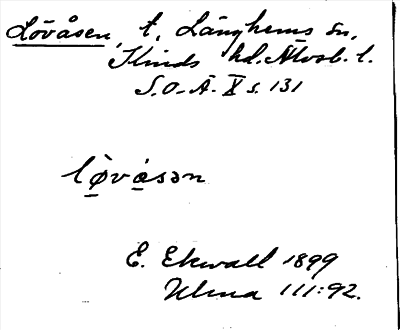 Lövåsen, t. Länghems sn,
Kinds hd. Älvsb. l.
S.O.Ä. X s. 131
lø̠̀vǻ̠sən
E. Ekwall 1899
Ulma 111:92.